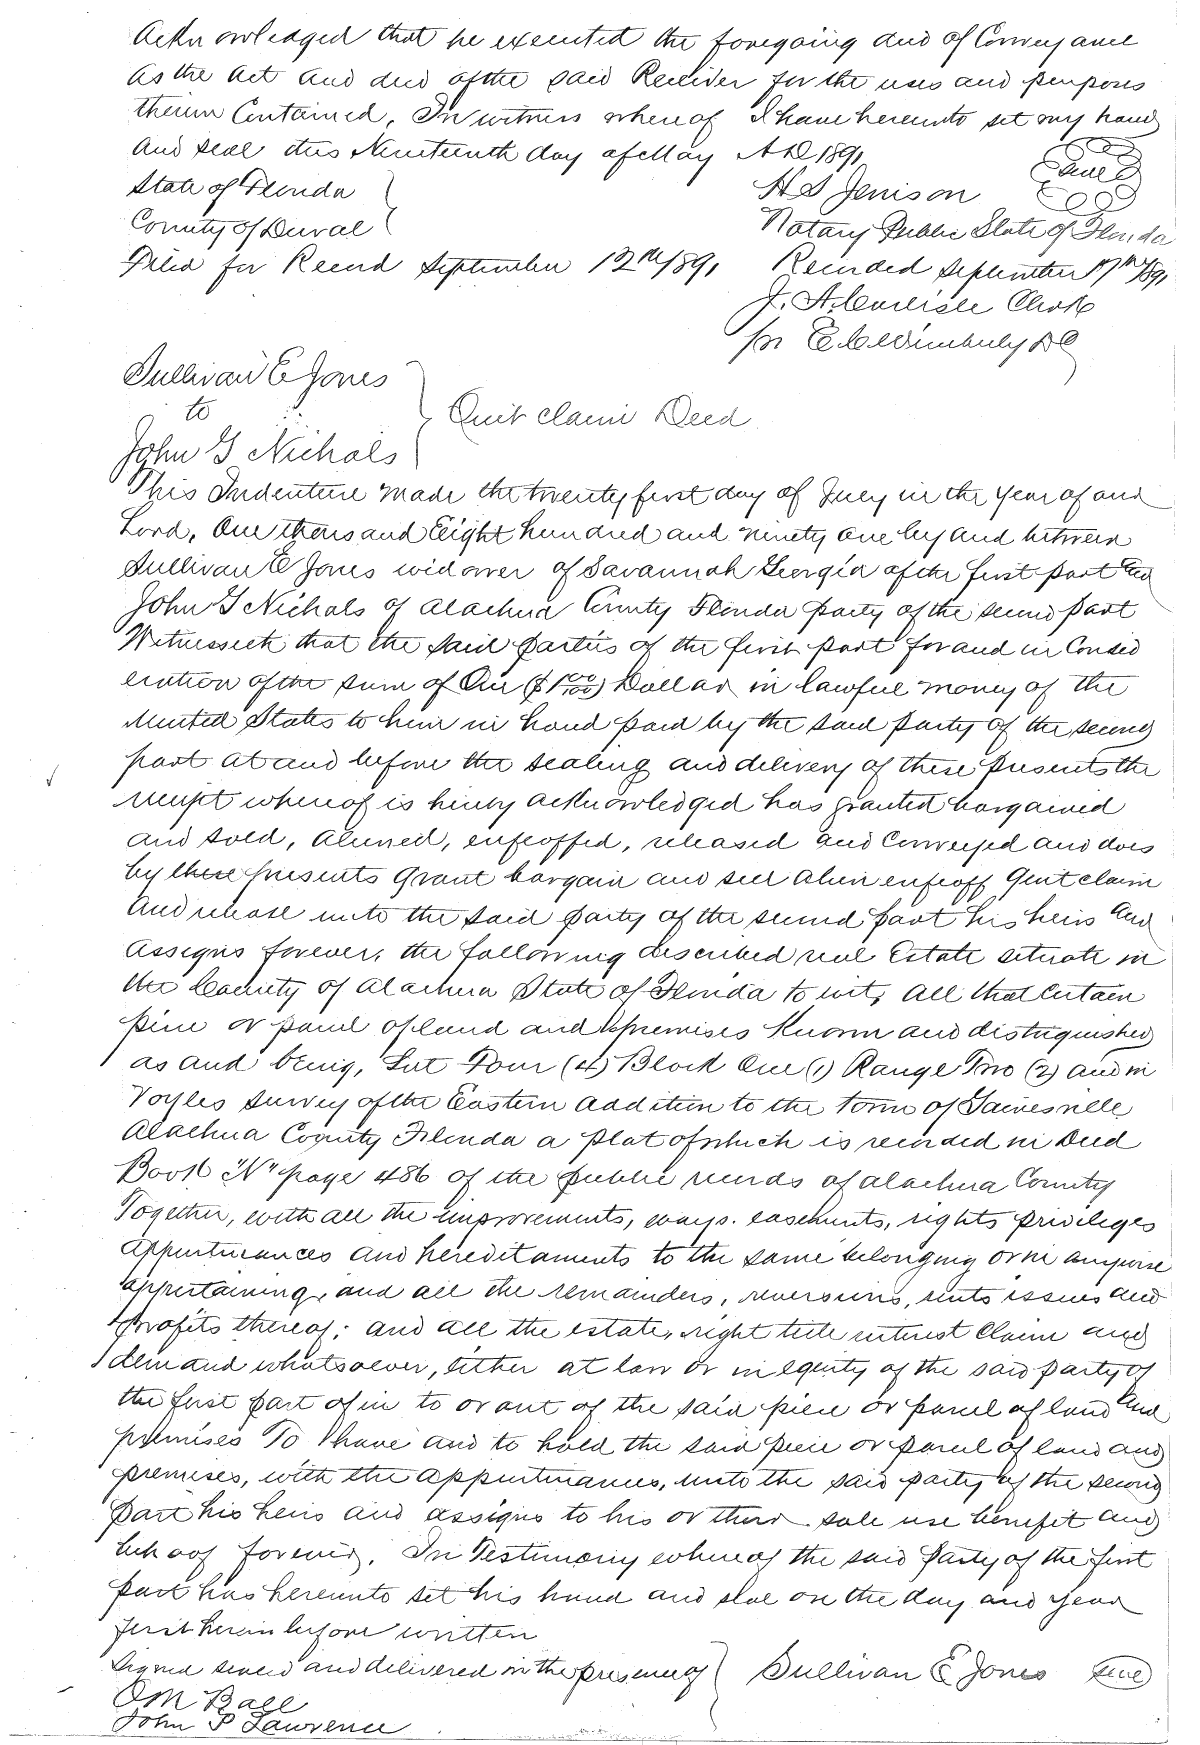 Acknowledged that he executed the foregoing deed of Conveyance
as the act and deed of the said Receiver for the uses and purposes
therein Contained, In witness whereof I have hereunto set my hand
and seal this Nineteenth day of May A.D. 1891,
State of Florida
County of Duval
H S Jenison Seal
Notary Public State of Florida
Filed for Record September 12th 1891 Recorded September 17th 1891
J. A. Carlisle Clerk
pr E. C. Wimberly DC
Sullivan E Jones
to
John G Nichols
Quit claim Deed
This Indenture made the twenty first day of July in the year of our
Lord, One thousand Eight hundred and ninety one by and between
Sullivan E Jones widower of Savannah Georgia of the first part and
John G Nichols of Alachua County Florida party of the second part
Witnesseth that the said parties of the first part for and in Consid
eration of the sum of One ($1 00/100) Dollar in lawful money of the
United States to him in hand paid by the said party of the second
part at and before the sealing and delivery of these presents the
receipt whereof is hereby acknowledged has granted bargained
and sold, aliened, enfeoffed, released and Conveyed and does
by these presents grant bargain and sell alien enfeoff Quit claim
and release unto the said party of the second part his heirs and
assigns forever, the following described real Estate situate in
the County of Alachua State of Florida to wit, All that Certain
piece or parcel of land and premises Known and distinguished
as and being, Lot Four (4) Block One (1) Range Two (2) and in
Voyles survey of the Eastern addition to the Town of Gainesville
Alachua County Florida a plat of which is recorded in Deed
Book "N" page 486 of the public records of Alachua County
Together, with all the improvements, ways. easements, rights privileges
appurtenances and hereditaments to the same belonging or in anywise
appertaining, and all the remainders, reversions, rents issues and
profits thereof; and all the estate, right title interest Claim and
demand whatsoever, either at law or in equity of the said party of
the first part of in to or out of the said piece or parcel of land and
premises To have and to hold the said piece or parcel of land and
premises, with the appurtenances, unto the said party of the second
part his heirs and assigns to his or their sole use benefit and
behoof forever. In Testimony whereof the said party of the first
part has hereunto set his hand and seal on the day and year
first herein before written
Signed sealed and delivered in the presence of Sullivan E Jones Seal
O M Ball
John P Lawrence